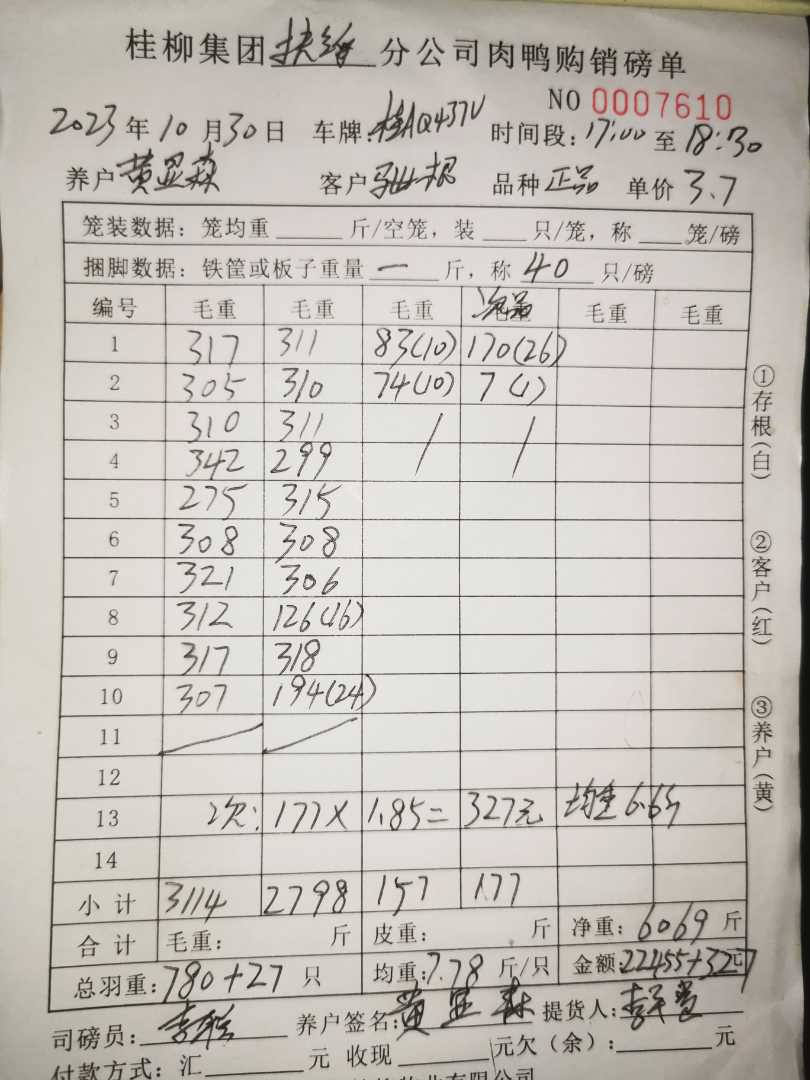 桂柳集团扶绥分公司肉鸭购销磅单
NO 0007610
2023年10月30日 车牌:桂AQ437U 时间段:17:00至18:30
养户 黄显森 客户 品种 正品 单价 3.7
笼装数据:笼均重 斤/空笼,装 只/笼,称 笼/磅
捆脚数据:铁筐或板子重量 一 斤,称 40 只/磅
编号 毛重 毛重 毛重 次品 毛重 毛重
1 317 311 83(10) 170(26)
2 305 310 74(10) 7(1)
3 310 311 / /
4 342 299
5 275 315
6 308 308
7 321 306
8 312 126(16)
9 317 318
10 307 194(24)
11
12
13 次: 177× 1.85= 327元 均重6.65
14
小计 3114 2798 157 177
合计 毛重: 斤 皮重: 斤 净重:6069斤
总羽重:780+27只 均重:7.78斤/只 金额:22455+327元
司磅员: 养户签名:黄显森 提货人:
付款方式:汇 元 收现 元欠(余): 元
①存根(白)
②客户(红)
③养户(黄)